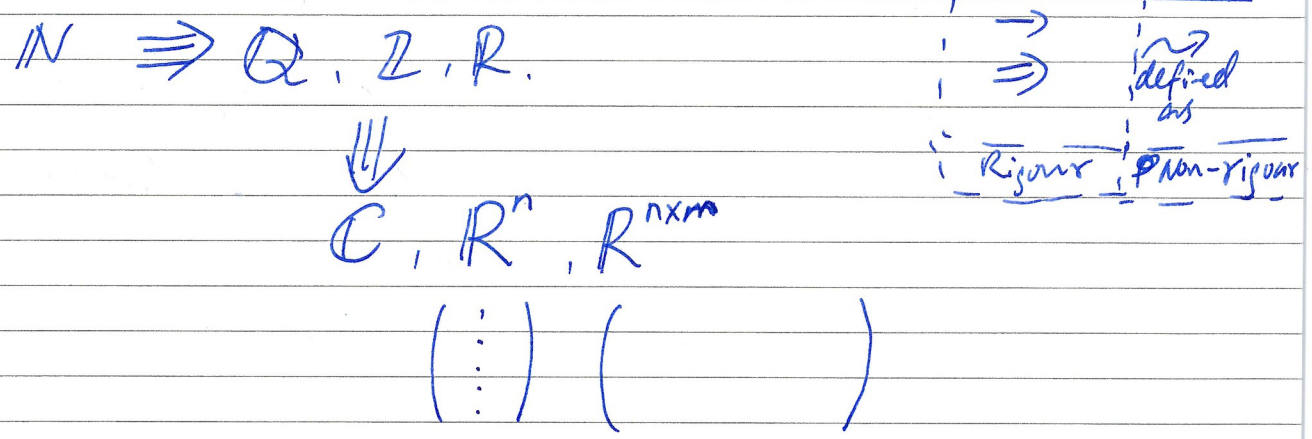 ℕ ⇛ ℚ, ℤ, ℝ.
ℂ, ℝⁿ, ℝⁿˣᵐ
→
⇒
defined
as
Rigour
Non-rigour